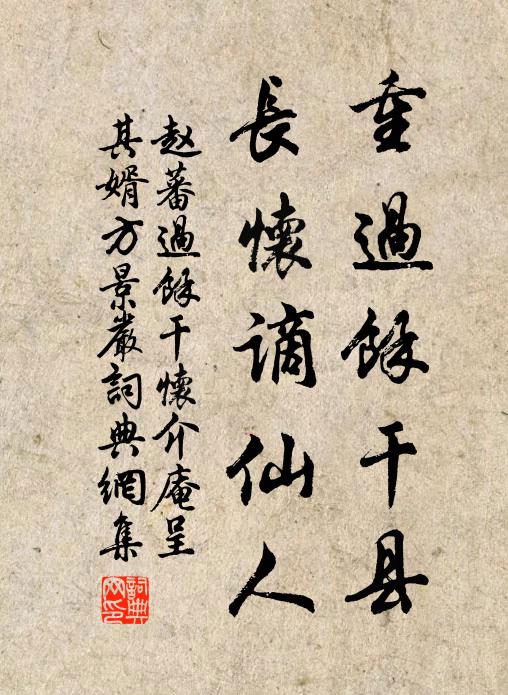 重過餘干县
長懷謫仙人
赵蕃過餘干懷介庵呈
其婿方景嚴詞典網集
詞典网印